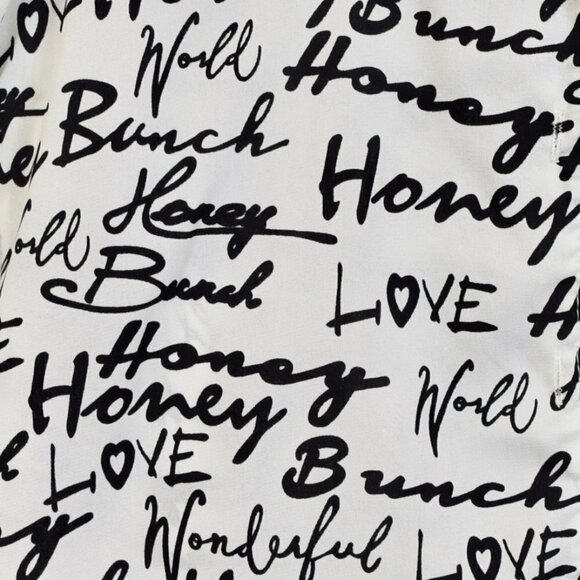 LOVE
Honey
Bunch
World
Honey
Bunch
Honey
Honey
World
Bunch
LOVE
Honey
Honey
World
LOVE
Bunch
Wonderful
LOVE